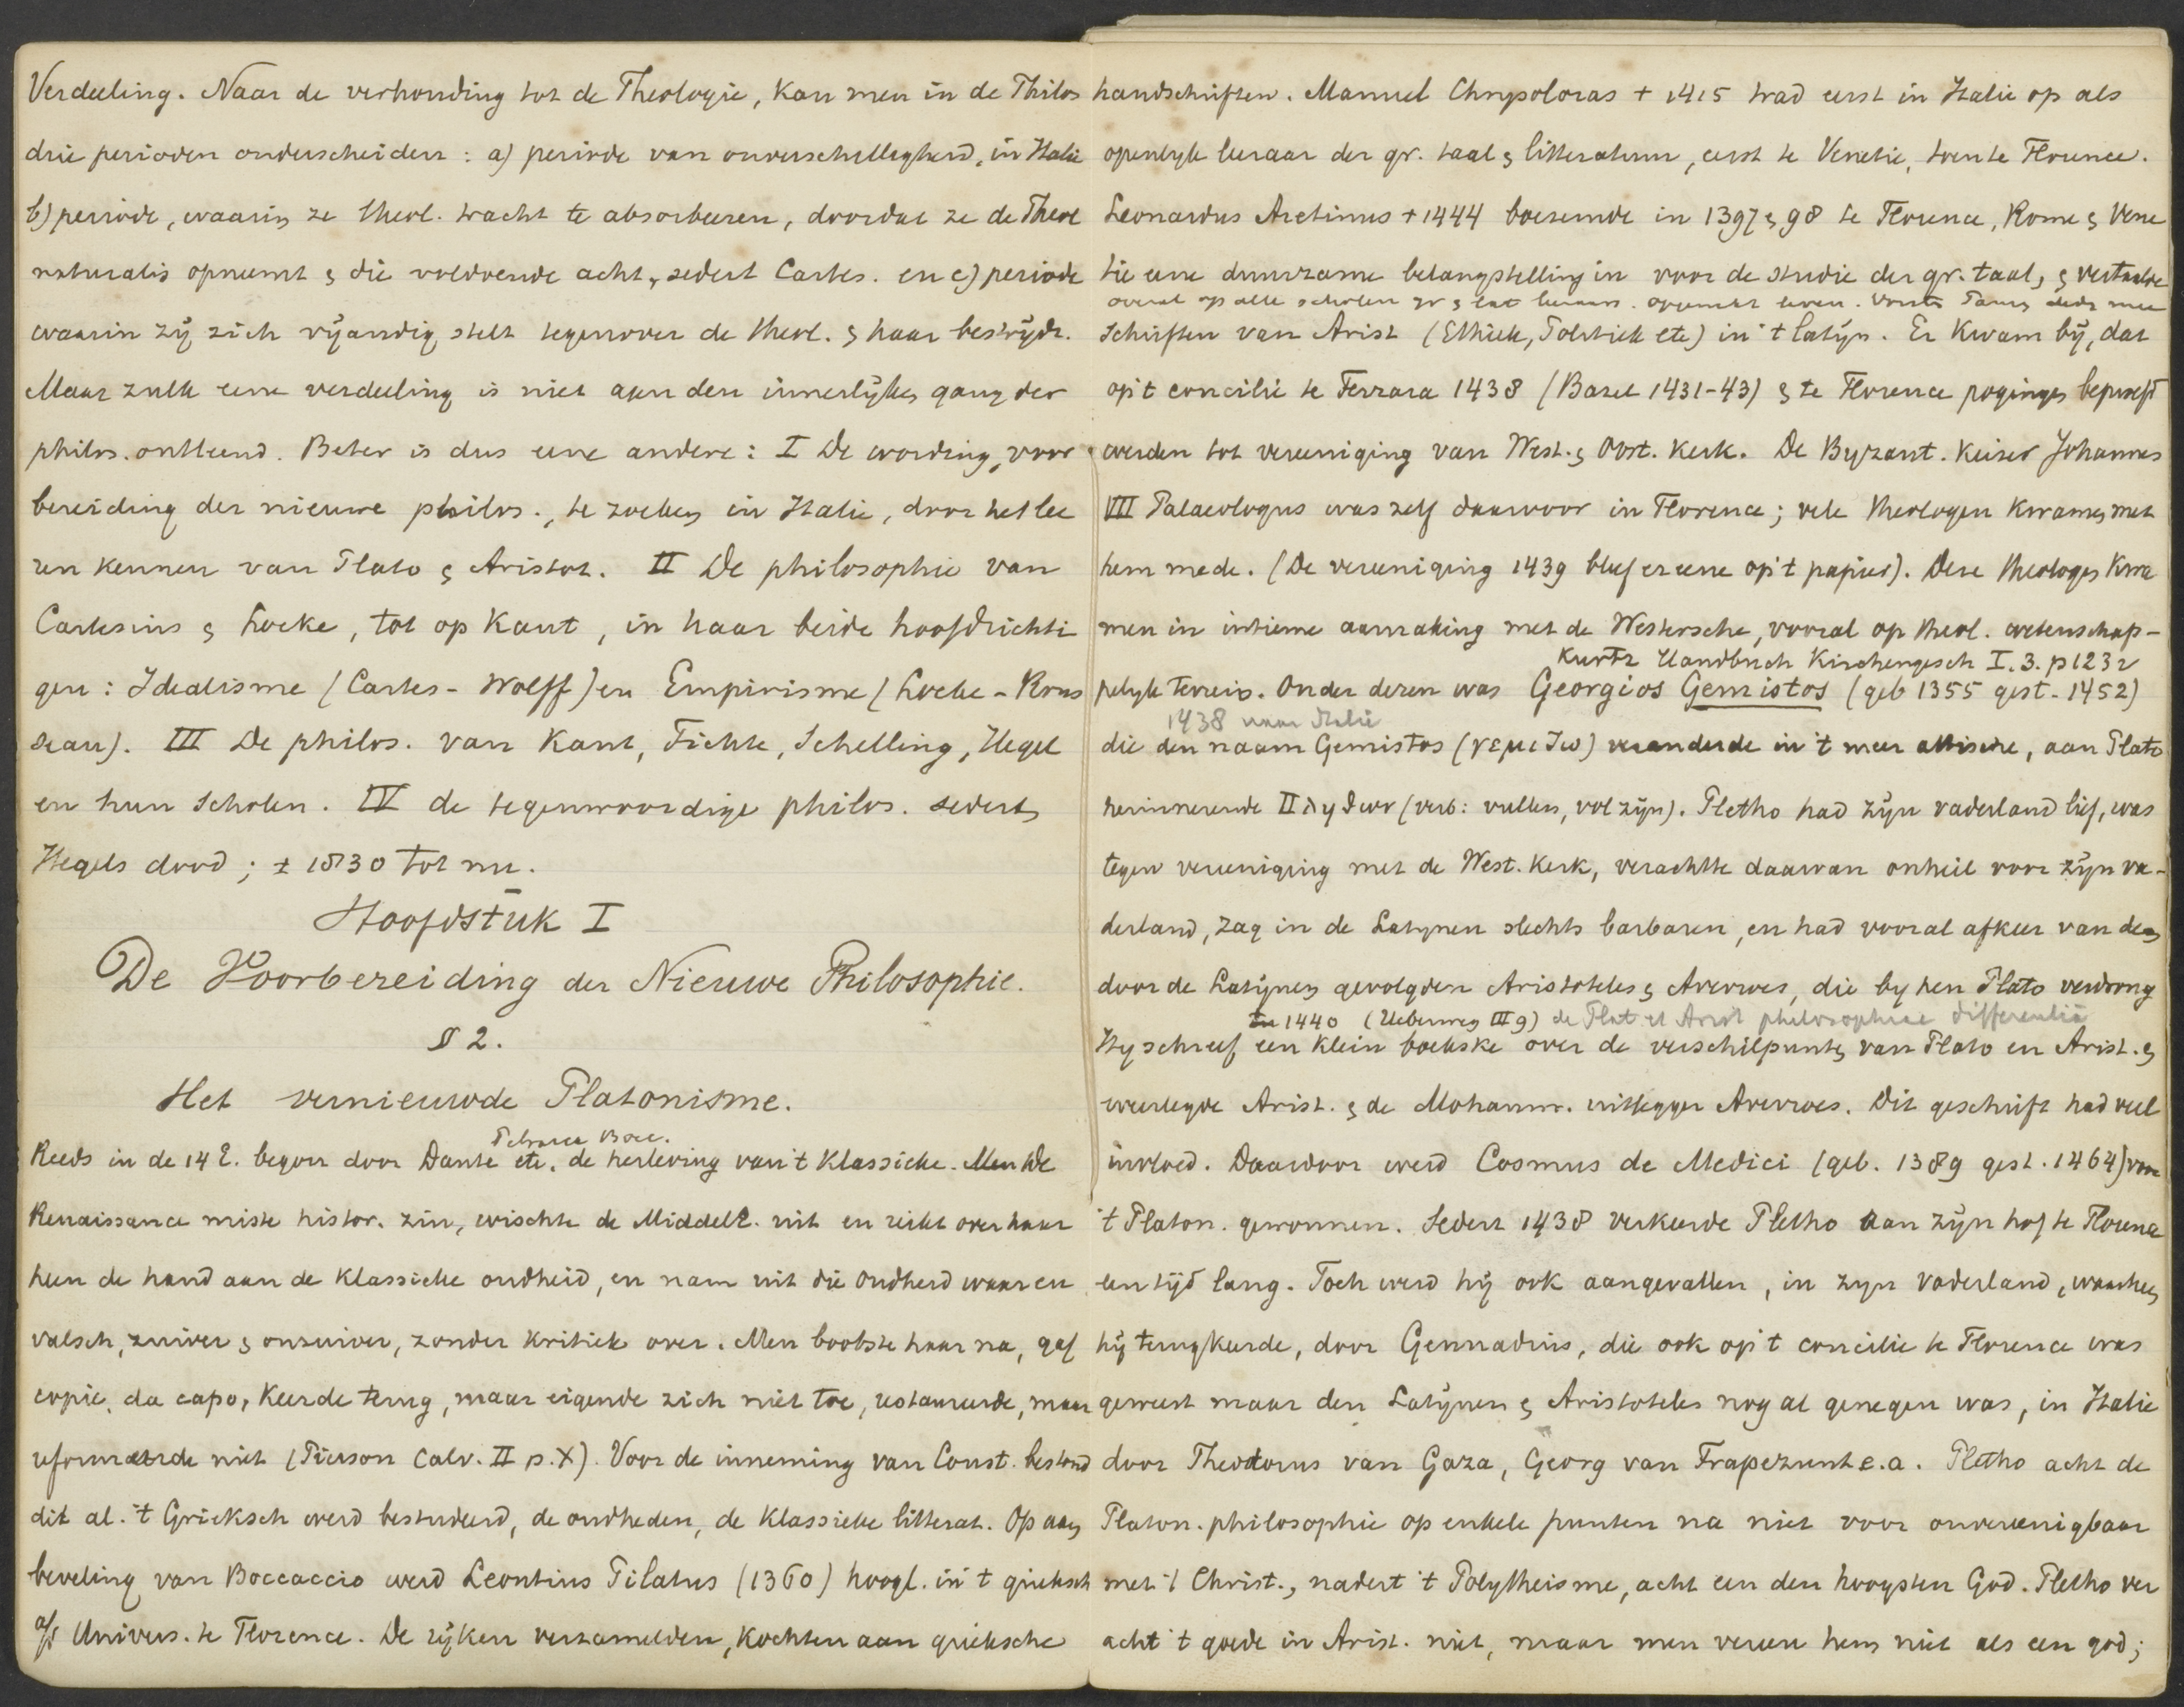 Verdeeling. Naar de verhouding tot de Theologie, kan men in de Philos
drie perioden onderscheiden: a) periode van onverschilligheid, in Italie
b) periode, waarin ze theol. tracht te absorbeeren, doordat ze de Theol
naturalis opneemt & die voldoende acht, sedert Cartes. en c) periode
waarin zij zich vijandig stelt tegenover de theol. & haar bestrijdt.
Maar zulk eene verdeeling is niet aan den innerlijken gang der
philos. ontleend. Beter is dus eene andere: I De wording, voor
bereiding der nieuwe philos., te zoeken in Italie, door het lee
ren kennen van Plato & Aristot. II De philosophie van
Cartesius & Locke, tot op Kant, in haar beide hoofdrichti
gen: Idealisme (Cartes - Wolff) en Empirisme (Locke - Rous
seau). III De philos. van Kant, Fichte, Schelling, Hegel
en hun scholen. IV de tegenwoordige philos. sedert
Hegels dood; ± 1830 tot nu.
Hoofdstuk I
De Voorbereiding der Nieuwe Philosophie.
§ 2.
Het vernieuwde Platonisme.
Petrarca Bocc.
Reeds in de 14 E. begon door Dante etc. de herleving van 't Klassieke. De
Renaissance miste histor. zin, wischte de Middel E. uit en reikt over haar
heen de hand aan de Klassieke oudheid, en nam uit die oudheid waar en
valsch, zuiver & onzuiver, zonder kritiek over. Men bootste haar na, gaf
copie, da capo, keerde terug, maar eigende zich niet toe, restaureerde, maar
reformeerde niet (Pierson Calv. II p. X). Voor de inneming van Const. bestond
dit al. 't Grieksch werd bestudeerd, de oudheden, de klassieke litterat. Op aan
beveling van Boccaccio werd Leontius Pilatus (1360) hoogl. in 't grieksch
a/d Univers. te Florence. De rijken verzamelden, kochten aan grieksche
handschriften. Manuel Chrysoloras + 1415 trad eerst in Italie op als
openlijk leeraar der gr. taal & litteratuur, eerst te Venetie, toen te Florence.
Leonardus Aretinus + 1444 boezemde in 1397 & 98 te Florence, Rome & Vene
tie eene duurzame belangstelling in voor de studie der gr. taal, & vertaalde
overal op alle scholen gr & lat leeraars.
Schriften van Arist (Ethiek, Politiek etc) in 't latijn. Er kwam bij, dat
op 't concilie te Ferrara 1438 (Bazel 1431-43) & te Florence pogingen beproefd
werden tot vereeniging van West. & Oost. Kerk. De Byzant. Keizer Johannes
VII Palaeologus was zelf daarvoor in Florence; vele theologen kwamen met
hem mede. (De vereeniging 1439 bleef er eene op 't papier). Deze theologen kwa
men in intieme aanraking met de Westersche, vooral op theol. wetenschap-
Kurtz Handbuch Kirchengesch I. 3. p 1232
pelijk terrein. Onder dezen was Georgios Gemistos (geb 1355 gest - 1452)
1438 naar Italie
die den naam Gemistos (γεμιζω) veranderde in 't meer attische, aan Plato
herinnerende Πληθων (verb: vullen, vol zijn). Pletho had zijn vaderland lief, was
tegen vereeniging met de West. Kerk, verachtte daarvan onheil voor zijn va-
derland, zag in de Latynen slechts barbaren, en had vooral afkeer van den
door de Latijnen gevolgden Aristoteles & Averroes, die by hen Plato verdrong
1440 (Ueberweg III 9) de Plat et Arist philosophiae differentia
Hy schreef een klein boekske over de verschilpunten van Plato en Arist. &
weerlegde Arist. & de Mohamm. uitlegger Averroes. Dit geschrift had veel
invloed. Daardoor werd Cosmus de Medici (geb. 1389 gest. 1464) voor
't Platon. gewonnen. Sedert 1438 verkeerde Pletho aan zijn hof te Florence
een tijd lang. Toch werd hij ook aangevallen, in zyn vaderland, waarheen
hij terugkeerde, door Gennadius, die ook op 't concilie te Florence was
geweest maar den Latijnen & Aristoteles nog al genegen was, in Italie
door Theodorus van Gaza, Georg van Trapezunt e.a. Pletho acht de
Platon. philosophie op enkele punten na niet voor onvereenigbaar
met 't Christ., nadert 't Polytheisme, acht een den hoogsten God. Pletho ver
acht 't goede in Arist. niet, maar men vereere hem niet als een god;